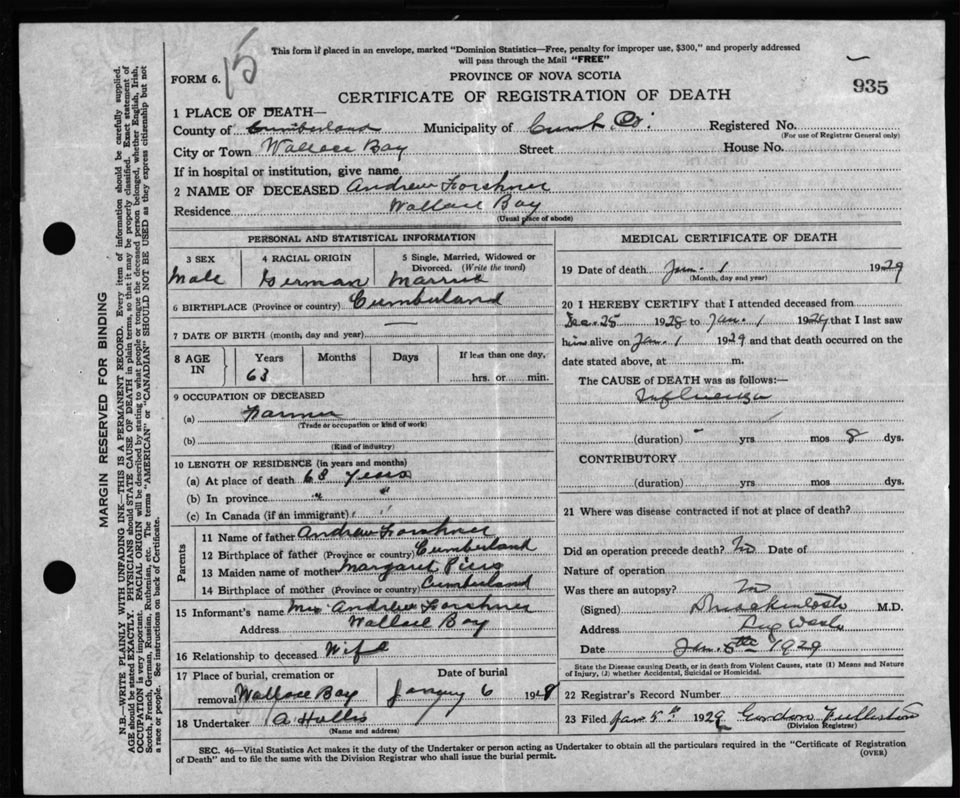 15
This form if placed in an envelope, marked "Dominion Statistics—Free, penalty for improper use, $300," and properly addressed
will pass through the Mail "FREE"
FORM 6.
PROVINCE OF NOVA SCOTIA
935
CERTIFICATE OF REGISTRATION OF DEATH
1 PLACE OF DEATH—
County of Cumberland Municipality of Cumb. Co. Registered No.
(For use of Registrar General only)
City or Town Wallace Bay Street House No.
If in hospital or institution, give name
2 NAME OF DECEASED Andrew Forshner
Residence Wallace Bay
(Usual place of abode)
PERSONAL AND STATISTICAL INFORMATION
3 SEX 4 RACIAL ORIGIN 5 Single, Married, Widowed or
Divorced. (Write the word)
Male German Married
6 BIRTHPLACE (Province or country) Cumberland
7 DATE OF BIRTH (month, day and year) —
8 AGE IN Years Months Days If less than one day,
63 hrs. or min.
9 OCCUPATION OF DECEASED
(a) Farmer
(Trade or occupation or kind of work)
(b)
(Kind of industry)
10 LENGTH OF RESIDENCE (in years and months)
(a) At place of death 63 years
(b) In province " "
(c) In Canada (if an immigrant) " "
Parents
11 Name of father Andrew Forshner
12 Birthplace of father (Province or country) Cumberland
13 Maiden name of mother Margaret
14 Birthplace of mother (Province or country) Cumberland
15 Informant's name Mrs Andrew Forshner
Address Wallace Bay
16 Relationship to deceased Wife
17 Place of burial, cremation or Date of burial
removal Wallace Bay 6 192
18 Undertaker A Hollis
(Name and address)
MEDICAL CERTIFICATE OF DEATH
19 Date of death Jan. 1 1929
(Month, day and year)
20 I HEREBY CERTIFY that I attended deceased from
Dec. 25 1928 to Jan. 1 1929 that I last saw
him alive on Jan. 1 1929 and that death occurred on the
date stated above, at m.
The CAUSE OF DEATH was as follows:—
Influenza
(duration) - yrs mos 8 dys.
CONTRIBUTORY
(duration) yrs mos dys.
21 Where was disease contracted if not at place of death?
Did an operation precede death? No Date of
Nature of operation
Was there an autopsy? No
(Signed) M.D.
Address Pugwash
Date Jan. 5th 1929
State the Disease causing Death, or in death from Violent Causes, state (1) Means and Nature
of Injury, (2) whether Accidental, Suicidal or Homicidal.
22 Registrar's Record Number
23 Filed Jan 5th 1929 Gordon
(Division Registrar)
SEC. 46—Vital Statistics Act makes it the duty of the Undertaker or person acting as Undertaker to obtain all the particulars required in the "Certificate of Registration
of Death" and to file the same with the Division Registrar who shall issue the burial permit.
(OVER)
MARGIN RESERVED FOR BINDING
N.B.—WRITE PLAINLY WITH UNFADING INK—THIS IS A PERMANENT RECORD. Every item of information should be carefully supplied.
AGE should be stated EXACTLY. PHYSICIANS should STATE CAUSE OF DEATH in plain terms, so that it may be properly classified. Exact statement of
OCCUPATION is very important. RACIAL ORIGIN will be described by stating to what people or tongue the deceased person belonged, whether English, Irish,
Scotch, French, German, Russian, Ruthenian, etc. The terms "AMERICAN" or "CANADIAN" SHOULD NOT BE USED as they express citizenship but not
a race or people. See instructions on back of Certificate.